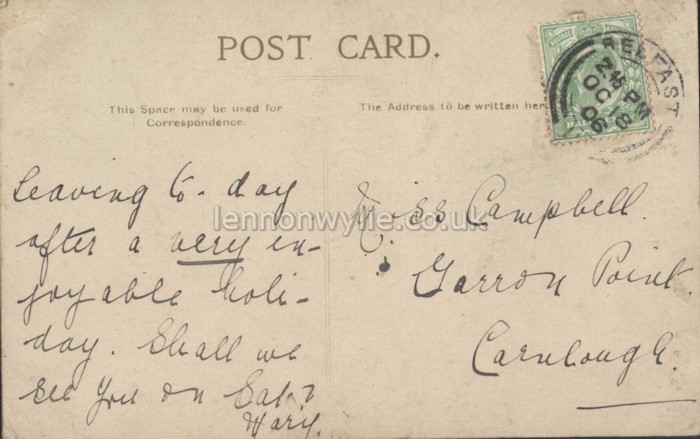 POST CARD.
This Space may be used for
Correspondence.
The Address to be written here
BELFAST
PM
OC
06
HAL
lennonwylie.co.uk
Leaving to-day
after a very en-
joyable holi-
day. Shall we
see you on Sat?
Mary.
Miss Campbell.
Garron Point.
Carnlough.